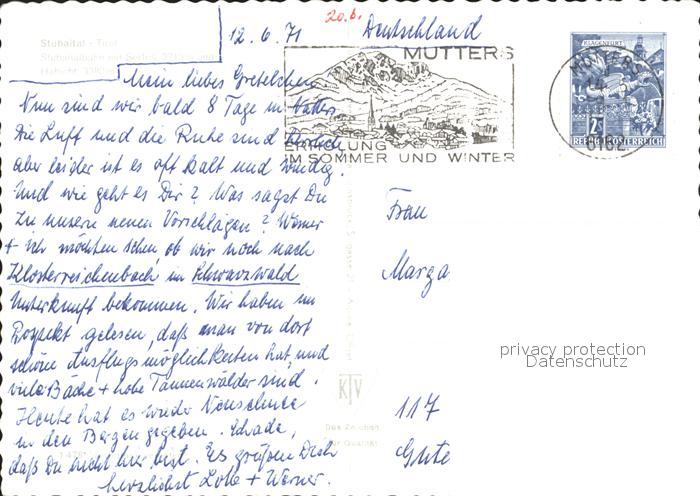 12.6.71
20.6.
Deutschland
Stubaital - Tirol
MUTTERS
ERHOLUNG
IM SOMMER UND WINTER
KLAGENFURT
2S
REPUBLIK ÖSTERREICH
MUTTERS
Mein liebes Gretelchen
Nun sind wir bald 8 Tage in Natters
Die Luft und die Ruhe sind
aber leider ist es oft kalt und windig.
Und wie geht es Dir? Was sagst Du
zu unseren neuen Vorschlägen? Werner
+ ich möchten sehen ob wir noch nach
Klosterreichenbach im Schwarzwald
Unterkunft bekommen. Wir haben im
Prospekt gelesen, daß man von dort
schöne Ausflugsmöglichkeiten hat, und
viele Bäche + hohe Tannenwälder sind.
Heute hat es wieder Neuschnee
in den Bergen gegeben. Schade,
daß Du nicht hier bist. Es grüßen Dich
herzlichst Lotte + Werner.
Frau
Marga
117
Gute
KTV
Das Zeichen
für Qualität
privacy protection
Datenschutz